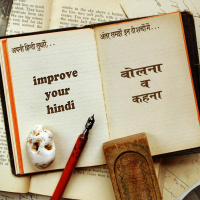 अपनी हिन्दी सुधारें...
improve
your
hindi
अंतर समझें इन दो शब्दों में...
बोलना
व
कहना